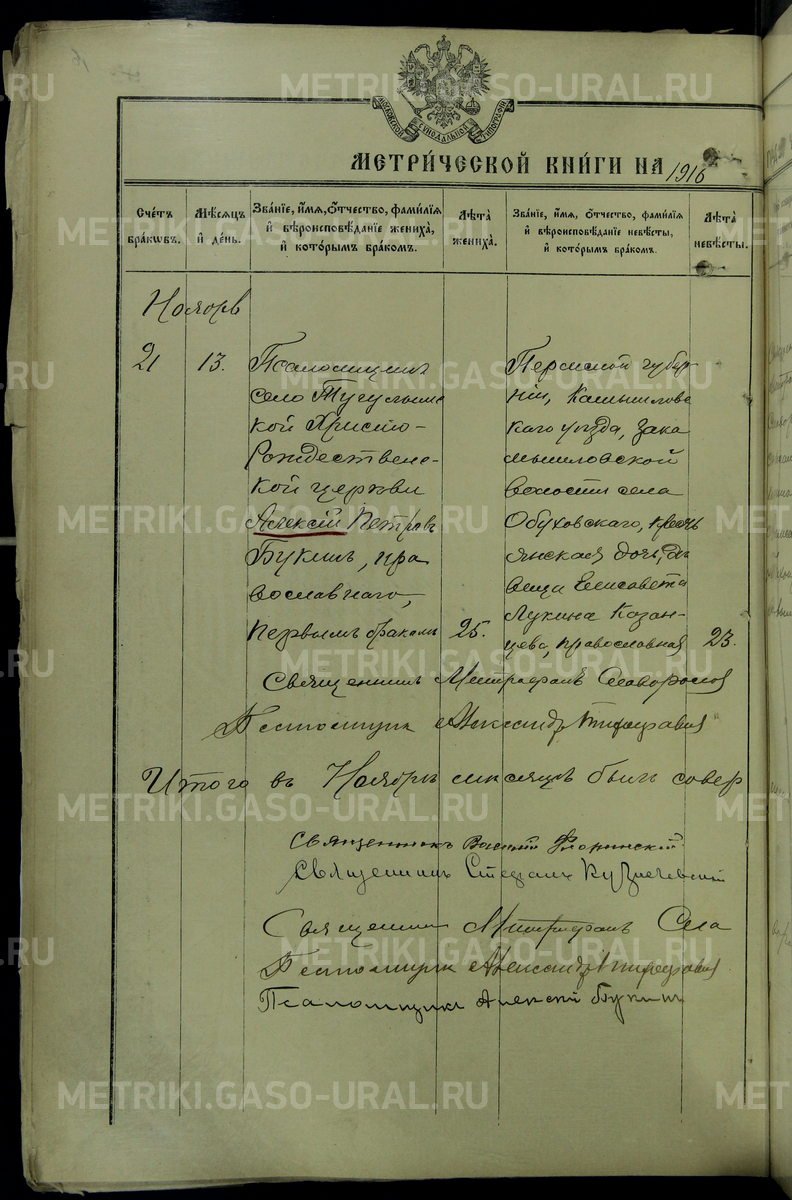 МОСКОВСКОЙ СѴНОДАЛЬНОЙ ТИПОГРАФІИ
МЕТРИ́ЧЕСКОЙ КНИ́ГИ НА 1916
Сче́тъ бра́кѡвъ.
Мѣ́сяцъ и҆ де́нь.
Зва́нїе, и҆́мя, ѻ҆́тчество, фами́лїя и҆ вѣроисповѣ́данїе жениха̀, и҆ кото́рымъ бра́комъ.
Лѣ́та жениха̀.
Зва́нїе, и҆́мя, ѻ҆́тчество, фами́лїя и҆ вѣроисповѣ́данїе невѣ́сты, и҆ кото́рымъ бра́комъ.
Лѣ́та невѣ́сты.
Ноябрь
21 13.
Псаломщикъ
село Тугулымс
кой Христо-
Рождественс-
кой церкви
Алексій Петровъ
Букинъ, пра
вославнаго,
первымъ бракомъ 25.
Пермской губер
ніи, Камышловс
каго уѣзда, Зака
мышловской
волости села
Обуховскаго, кресть
янская дочь, дѣ
вица Елисавета
Лукина Казан-
цева, православная 23.
Священникъ Митрофанъ
Александръ
Итого въ Ноябрѣ мѣсяцѣ былъ совер
Священникъ Василій Флоринскій
Священникъ Стефанъ
Священникъ Митрофанъ
Александръ
Псаломщикъ Алексій Букинъ
METRIKI.GASO-URAL.RU